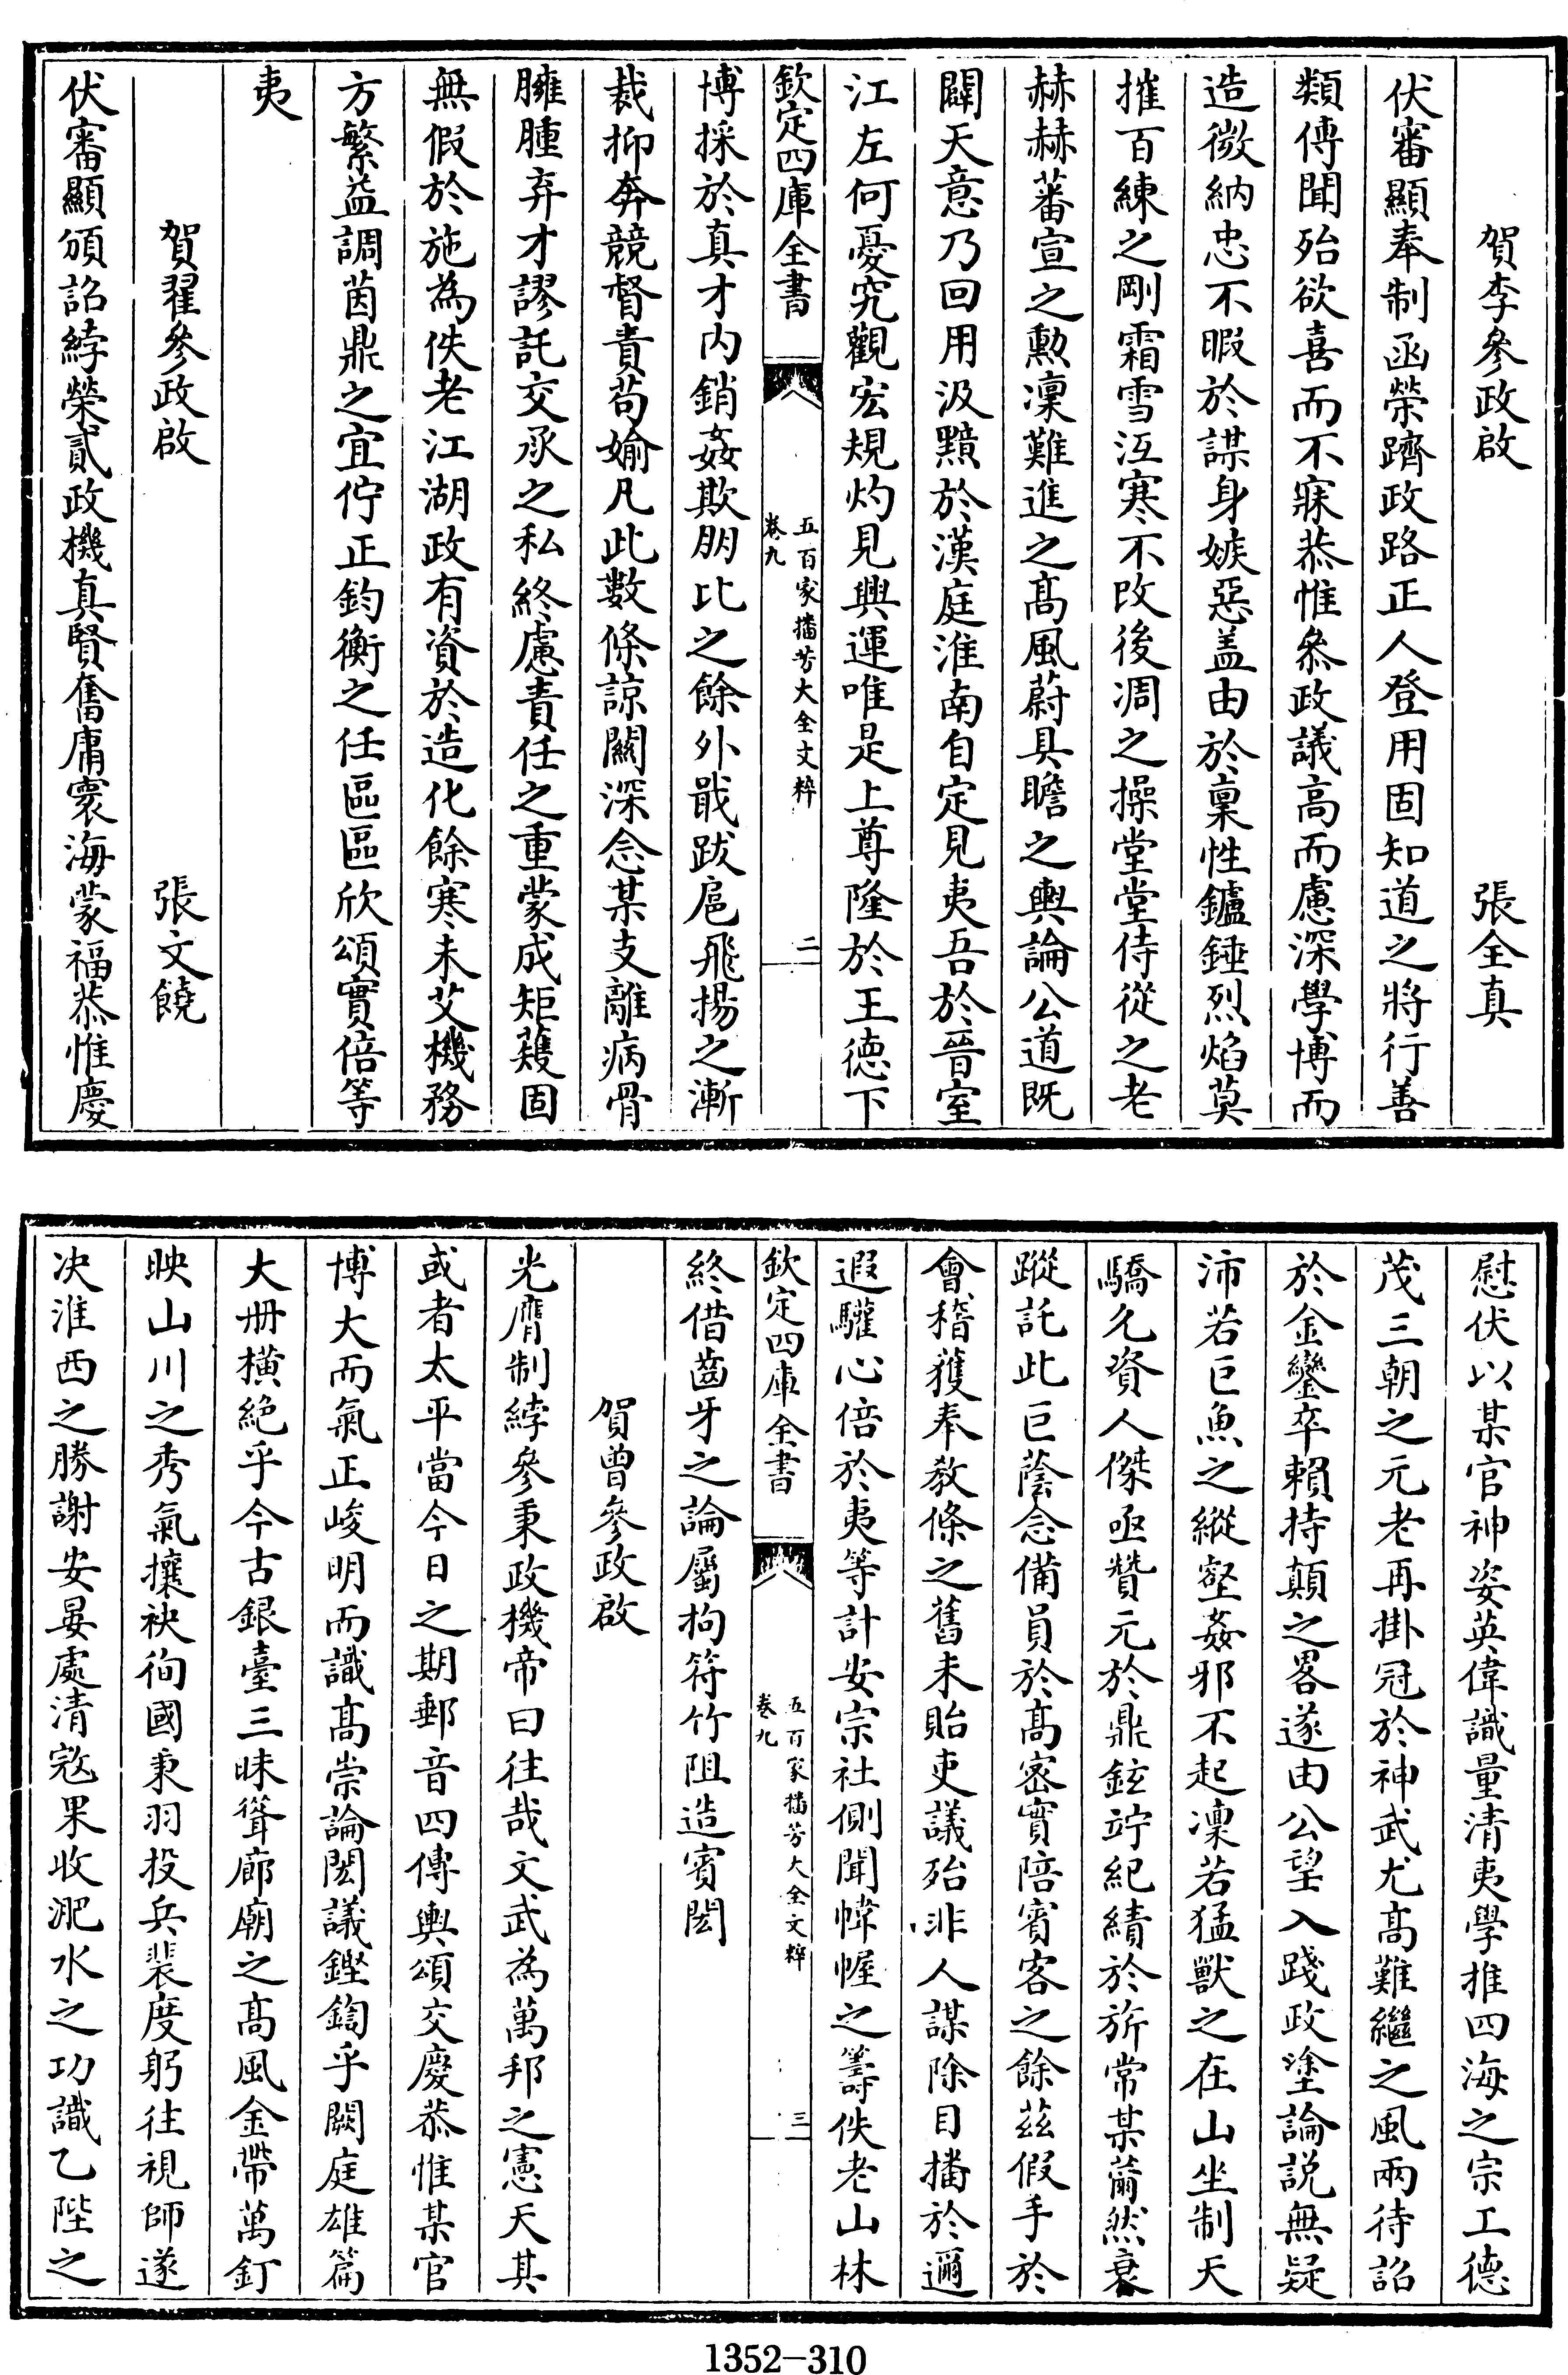 賀李參政啟　張全真
伏審顯奉制函榮躋政路正人登用固知道之將行善
類傳聞殆欲喜而不寐恭惟參政議高而慮深學博而
造微納忠不暇於謀身嫉惡蓋由於稟性鑪錘烈焰莫
摧百鍊之剛霜雪沍寒不改後凋之操堂堂侍從之老
赫赫蕃宣之勲凜難進之高風蔚具瞻之輿論公道既
闢天意乃回用汲黯於漢庭淮南自定見夷吾於晉室
江左何憂究觀宏規灼見興運唯是上尊隆於王德下
欽定四庫全書　五百家播芳大全文粹　卷九　二
博採於真才內銷姦欺朋比之餘外戢跋扈飛揚之漸
裁抑奔競督責苟媮凡此數條諒關深念某支離病骨
臃腫弃才謬託交承之私終慮責任之重蒙成矩矱固
無假於施為佚老江湖政有資於造化餘寒未艾機務
方繁益調茵鼎之宜佇正鈞衡之任區區欣頌實倍等
夷
賀翟參政啟　張文饒
伏審顯頒詔綍榮貳政機真賢奮庸寰海蒙福恭惟慶
慰伏以某官神姿英偉識量清夷學推四海之宗工德
茂三朝之元老再掛冠於神武尤高難繼之風兩待詔
於金鑾卒賴持顛之畧遂由公望入踐政塗論説無疑
沛若巨魚之縱壑姦邪不起凜若猛獸之在山坐制天
驕允資人傑亟贊元於鼎鉉竚紀績於旂常某薾然衰
蹤託此巨蔭念備員於髙密實陪賓客之餘茲假手於
會稽獲奉教條之舊未貽吏議殆非人謀除目播於邇
遐驩心倍於夷等計安宗社側聞幃幄之籌佚老山林
欽定四庫全書　五百家播芳大全文粹　卷九　三
終借齒牙之論屬拘符竹阻造賓閎
賀曾參政啟
光膺制綍參秉政機帝曰往哉文武為萬邦之憲天其
或者太平當今日之期郵音四傳輿頌交慶恭惟某官
博大而氣正峻明而識髙崇論閎議鏗鍧乎闕庭雄篇
大冊橫絶乎今古銀臺三昧聳廊廟之髙風金帶萬釘
映山川之秀氣攘袂徇國秉羽投兵裴度躬往視師遂
决淮西之勝謝安晏處清㓂果收淝水之功識乙陛之
1352-310